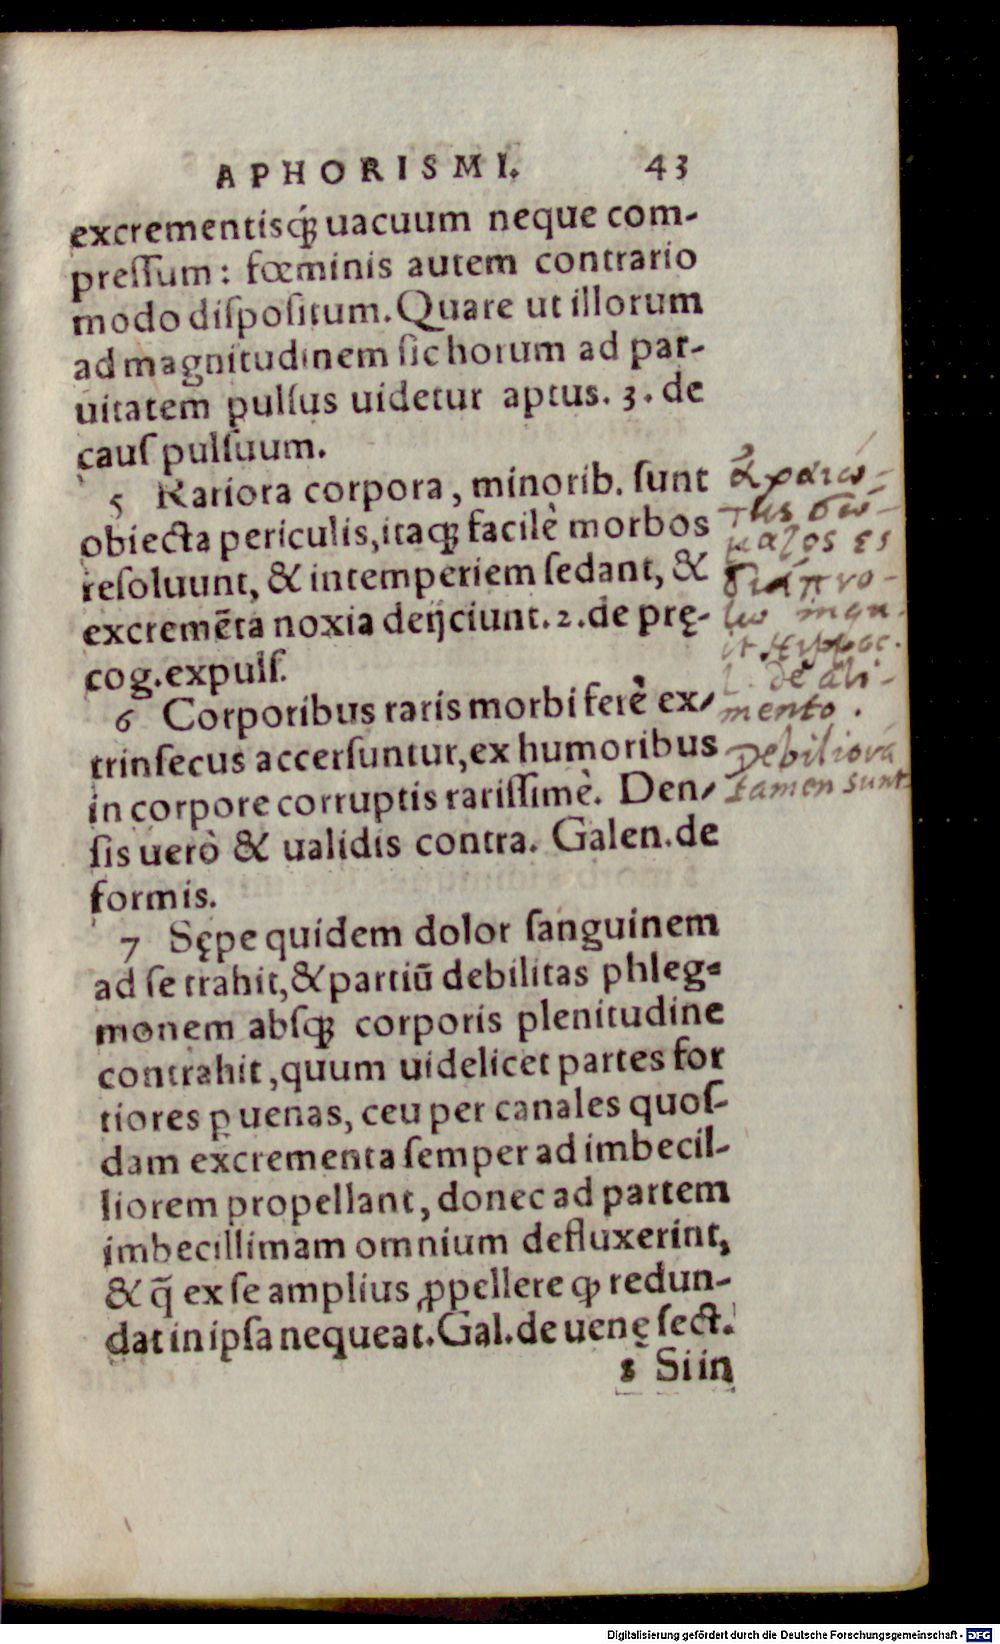 APHORISMI. 43
excrementisq́ꝫ uacuum neque com-
preſſum: fœminis autem contrario
modo diſpoſitum. Quare ut illorum
ad magnitudinem ſic horum ad par-
uitatem pulſus uidetur aptus. 3. de
cauſ pulſuum.
5 Rariora corpora, minorib. ſunt
obiecta periculis, itaqꝫ facilè morbos
reſoluunt, & intemperiem ſedant, &
excremẽta noxia deijciunt. 2. de prę-
cog. expulſ.
6 Corporibus raris morbi ferè ex-
trinſecus accerſuntur, ex humoribus
in corpore corruptis rariſſimè. Den-
ſis uerò & ualidis contra. Galen. de
formis.
7 Sępe quidem dolor ſanguinem
ad ſe trahit, & partiũ debilitas phleg-
monem abſqꝫ corporis plenitudine
contrahit, quum uidelicet partes for
tiores ꝑ uenas, ceu per canales quoſ-
dam excrementa ſemper ad imbecil-
liorem propellant, donec ad partem
imbecillimam omnium defluxerint,
& q̃ ex ſe amplius ꝓpellere ꝙ redun-
dat in ipſa nequeat. Gal. de uenę ſect.
8 Si in
ἀραιώ-
της σώ-
ματος ες
διαπνο-
inqu-
it Hyppoc.
l. de ali-
mento.
Debiliora
tamen sunt
Digitalisierung gefördert durch die Deutsche Forschungsgemeinschaft - DFG